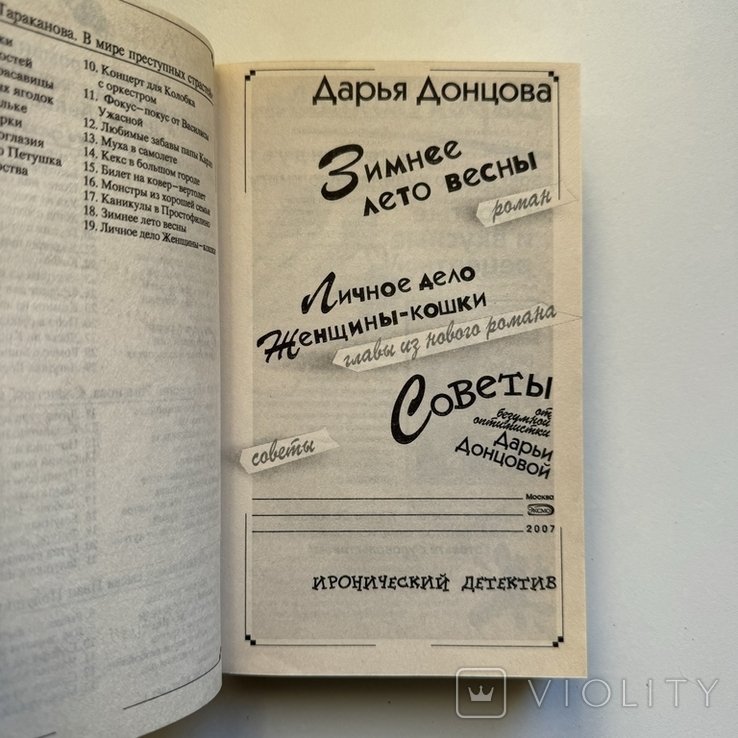 Тараканова. В мире преступных страстей
ки
остей
расавицы
их ягодок
льке
арки
оглазия
о Петушка
рства
10. Концерт для Колобка
с оркестром
11. Фокус-покус от Василисы
Ужасной
12. Любимые забавы папы Карло
13. Муха в самолете
14. Кекс в большом городе
15. Билет на ковер-вертолет
16. Монстры из хорошей семьи
17. Каникулы в Простофилино
18. Зимнее лето весны
19. Личное дело Женщины-кошки
Дарья Донцова
Зимнее
лето весны
роман
Личное дело
Женщины-кошки
главы из нового романа
Советы
от
безумной
оптимистки
Дарьи
Донцовой
советы
Москва
ЭКСМО
2007
ИРОНИЧЕСКИЙ ДЕТЕКТИВ
VIOLITY